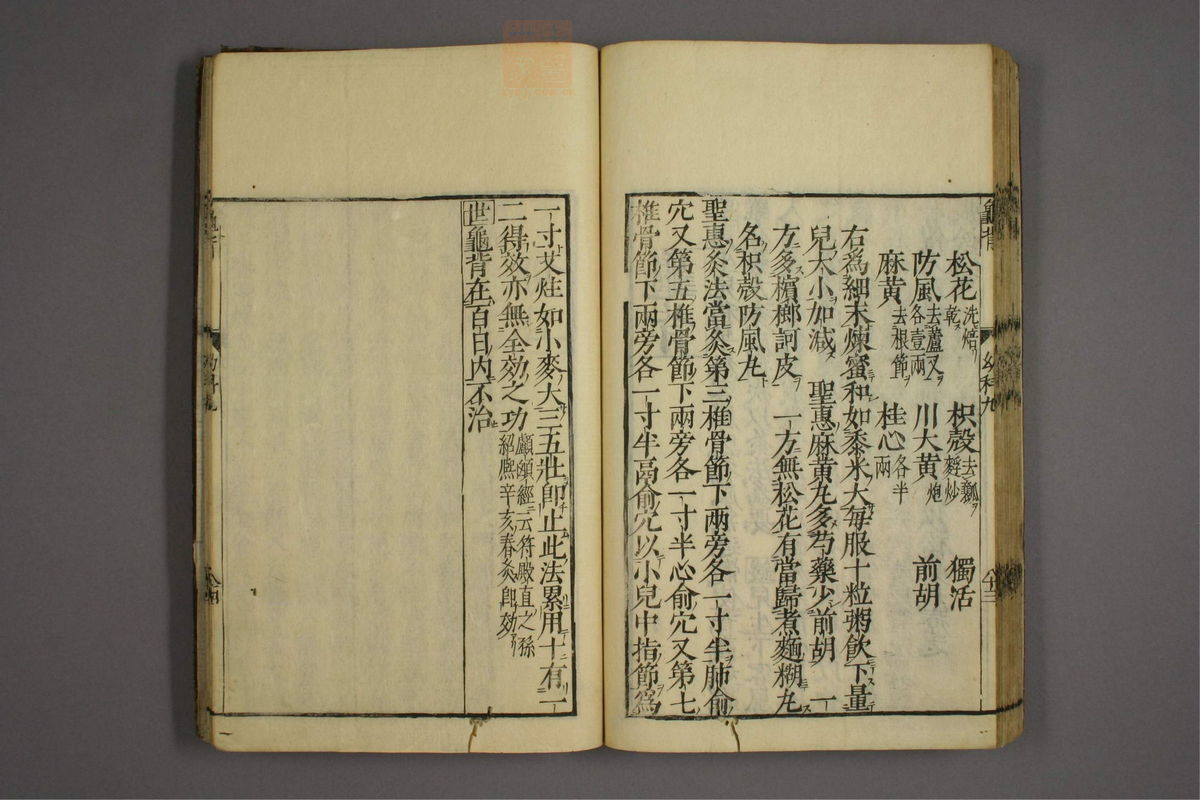 龜背 幼科九
松花洗焙乾 枳殼去瓤麩炒 獨活
防風去蘆叉各壹兩 川大黃炮 前胡
麻黃去根節 桂心各半兩
右爲細末煉蜜和如黍米大每服十粒粥飲下量
兒大小加減 聖惠麻黃丸多芍藥少前胡 一
方多檳榔訶皮 一方無松花有當歸煮麵糊丸
名枳殼防風丸
聖惠灸法當灸第三椎骨節下兩旁各一寸半肺俞
穴又第五椎骨節下兩旁各一寸半心俞穴又第七
椎骨節下兩旁各一寸半鬲俞穴以小兒中指節爲
一寸艾炷如小麥大三五壯即止此法累用十有一
二得效亦無全効之功顱顖經云符殿直之孫紹熙辛亥春灸即効
世龜背在百日内不治